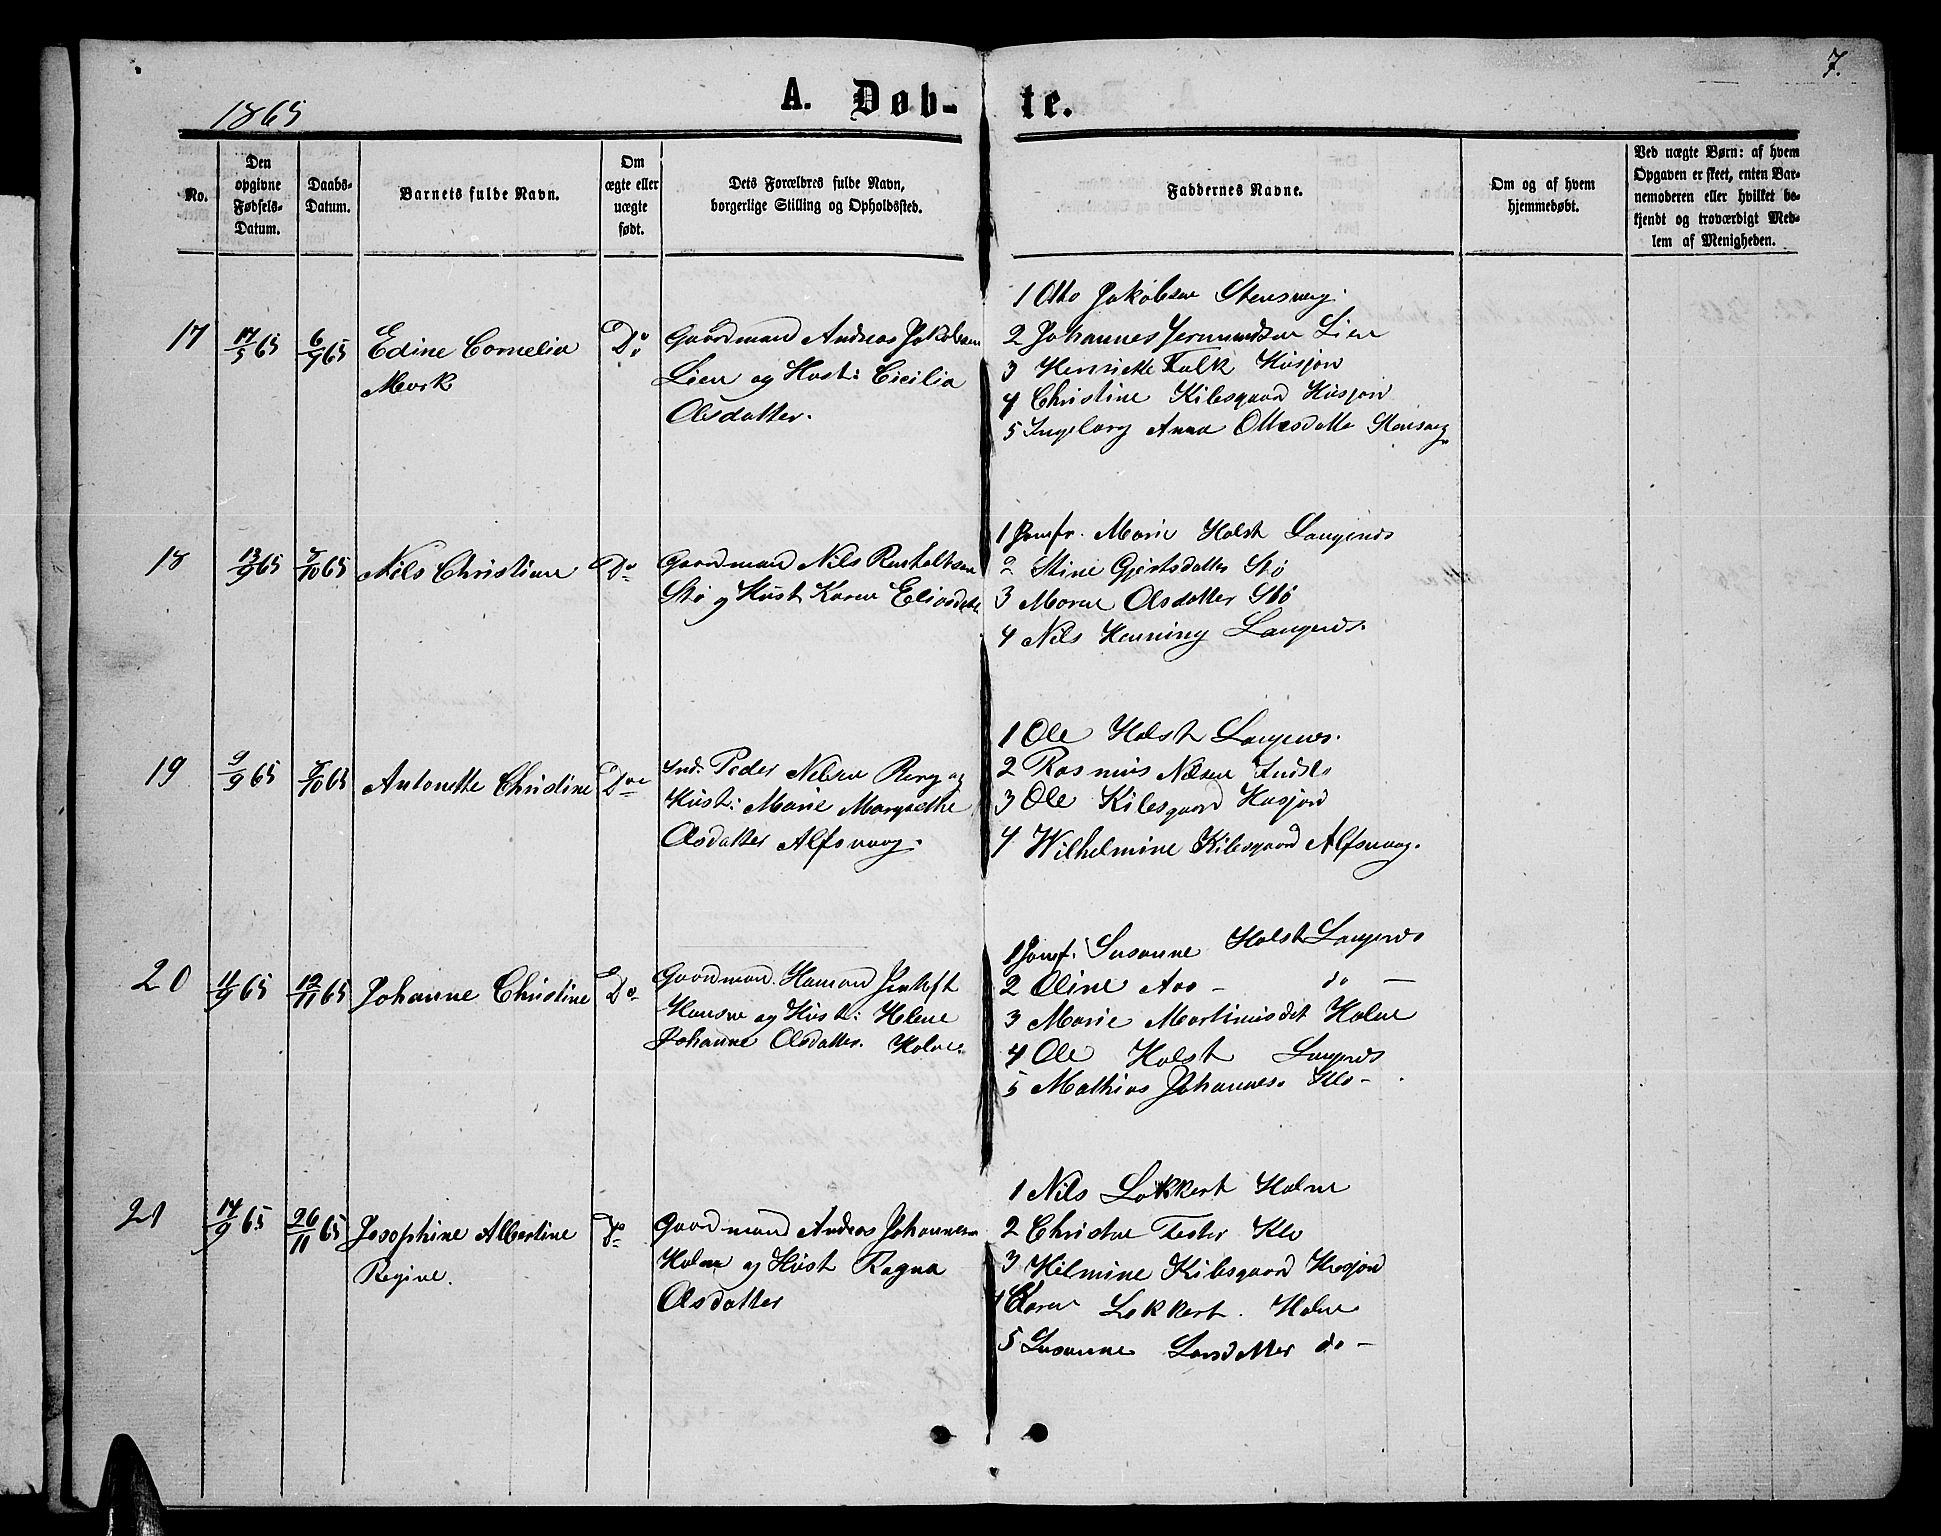 7.
1865
A. Døb-te.
No.
Den opgivne Fødsels-Datum.
Daabs-Datum.
Barnets fulde Navn.
Om ægte eller uægte født.
Dets Forældres fulde Navn, borgerlige Stilling og Opholdssted.
Faddernes Navne.
Om og af hvem hjemmedøbt.
Ved uægte Børn: af hvem Opgaven er skeet, enten Barnemoderen eller hvilket bekjendt og troværdigt Medlem af Menigheden.
17
17/5 65
6/9 65
Edine Cornelia
Mork
Do
Gaardmand Andreas Jakobsen
Lien og Hust: Cicilia
Olsdatter.
1 Otto Jakobsen Stensvag.
2 Johannes Jermundsen Lien
3 Henriette Falk Husjord
4 Christine Kilesgaard Husjord
5 Ingeborg Anna Ottesdatte Stensvag
18
13/9 65
8/10 65
Nils Christian
Do
Gaardmand Nils
Stø og Hust Karen Eliasdatte
1 Jomfr. Marie Holst Langenes
2 Stine Gjertsdatter Stø
3 Maren Olsdatter Stø
4 Nils Henning Langenes.
19
9/9 65
8/10 65
Antonette Christine
Do
Ind. Peder Nilsen Berg og
Hust: Marie Margrethe
Olsdatter Alfsvaag.
1 Ole Holst Langenes.
2 Rasmus Nilsen
3 Ole Kilesgaard Husjord
4 Wilhelmine Kilesgaard Alfsvaag.
20
11/9 65
12/11 65
Johanne Christine
Do
Gaardmand. Hemand Jentoft
Hansen og Hust: Helene
Johanne Olsdatter. Holm.
1 Jomf. Susanne Holst Langenes
2 Oline Aas - do -
3 Marie Martinusdat Holm
4 Ole Holst Langenes
5 Mathias Johannes. Klo -
21
14/9 65
26/11 65
Josephine Albertine
Regine.
Do
Gaardmand Andreas Johannesen
Holm og Hust Ragna
Olsdatter
1 Nils Lokkert Holm
2 Christine Klo
3 Hilmine Kilesgaard Husjord
4 Caren Lokkert. Holm
5 Susanne Larsdatter do -